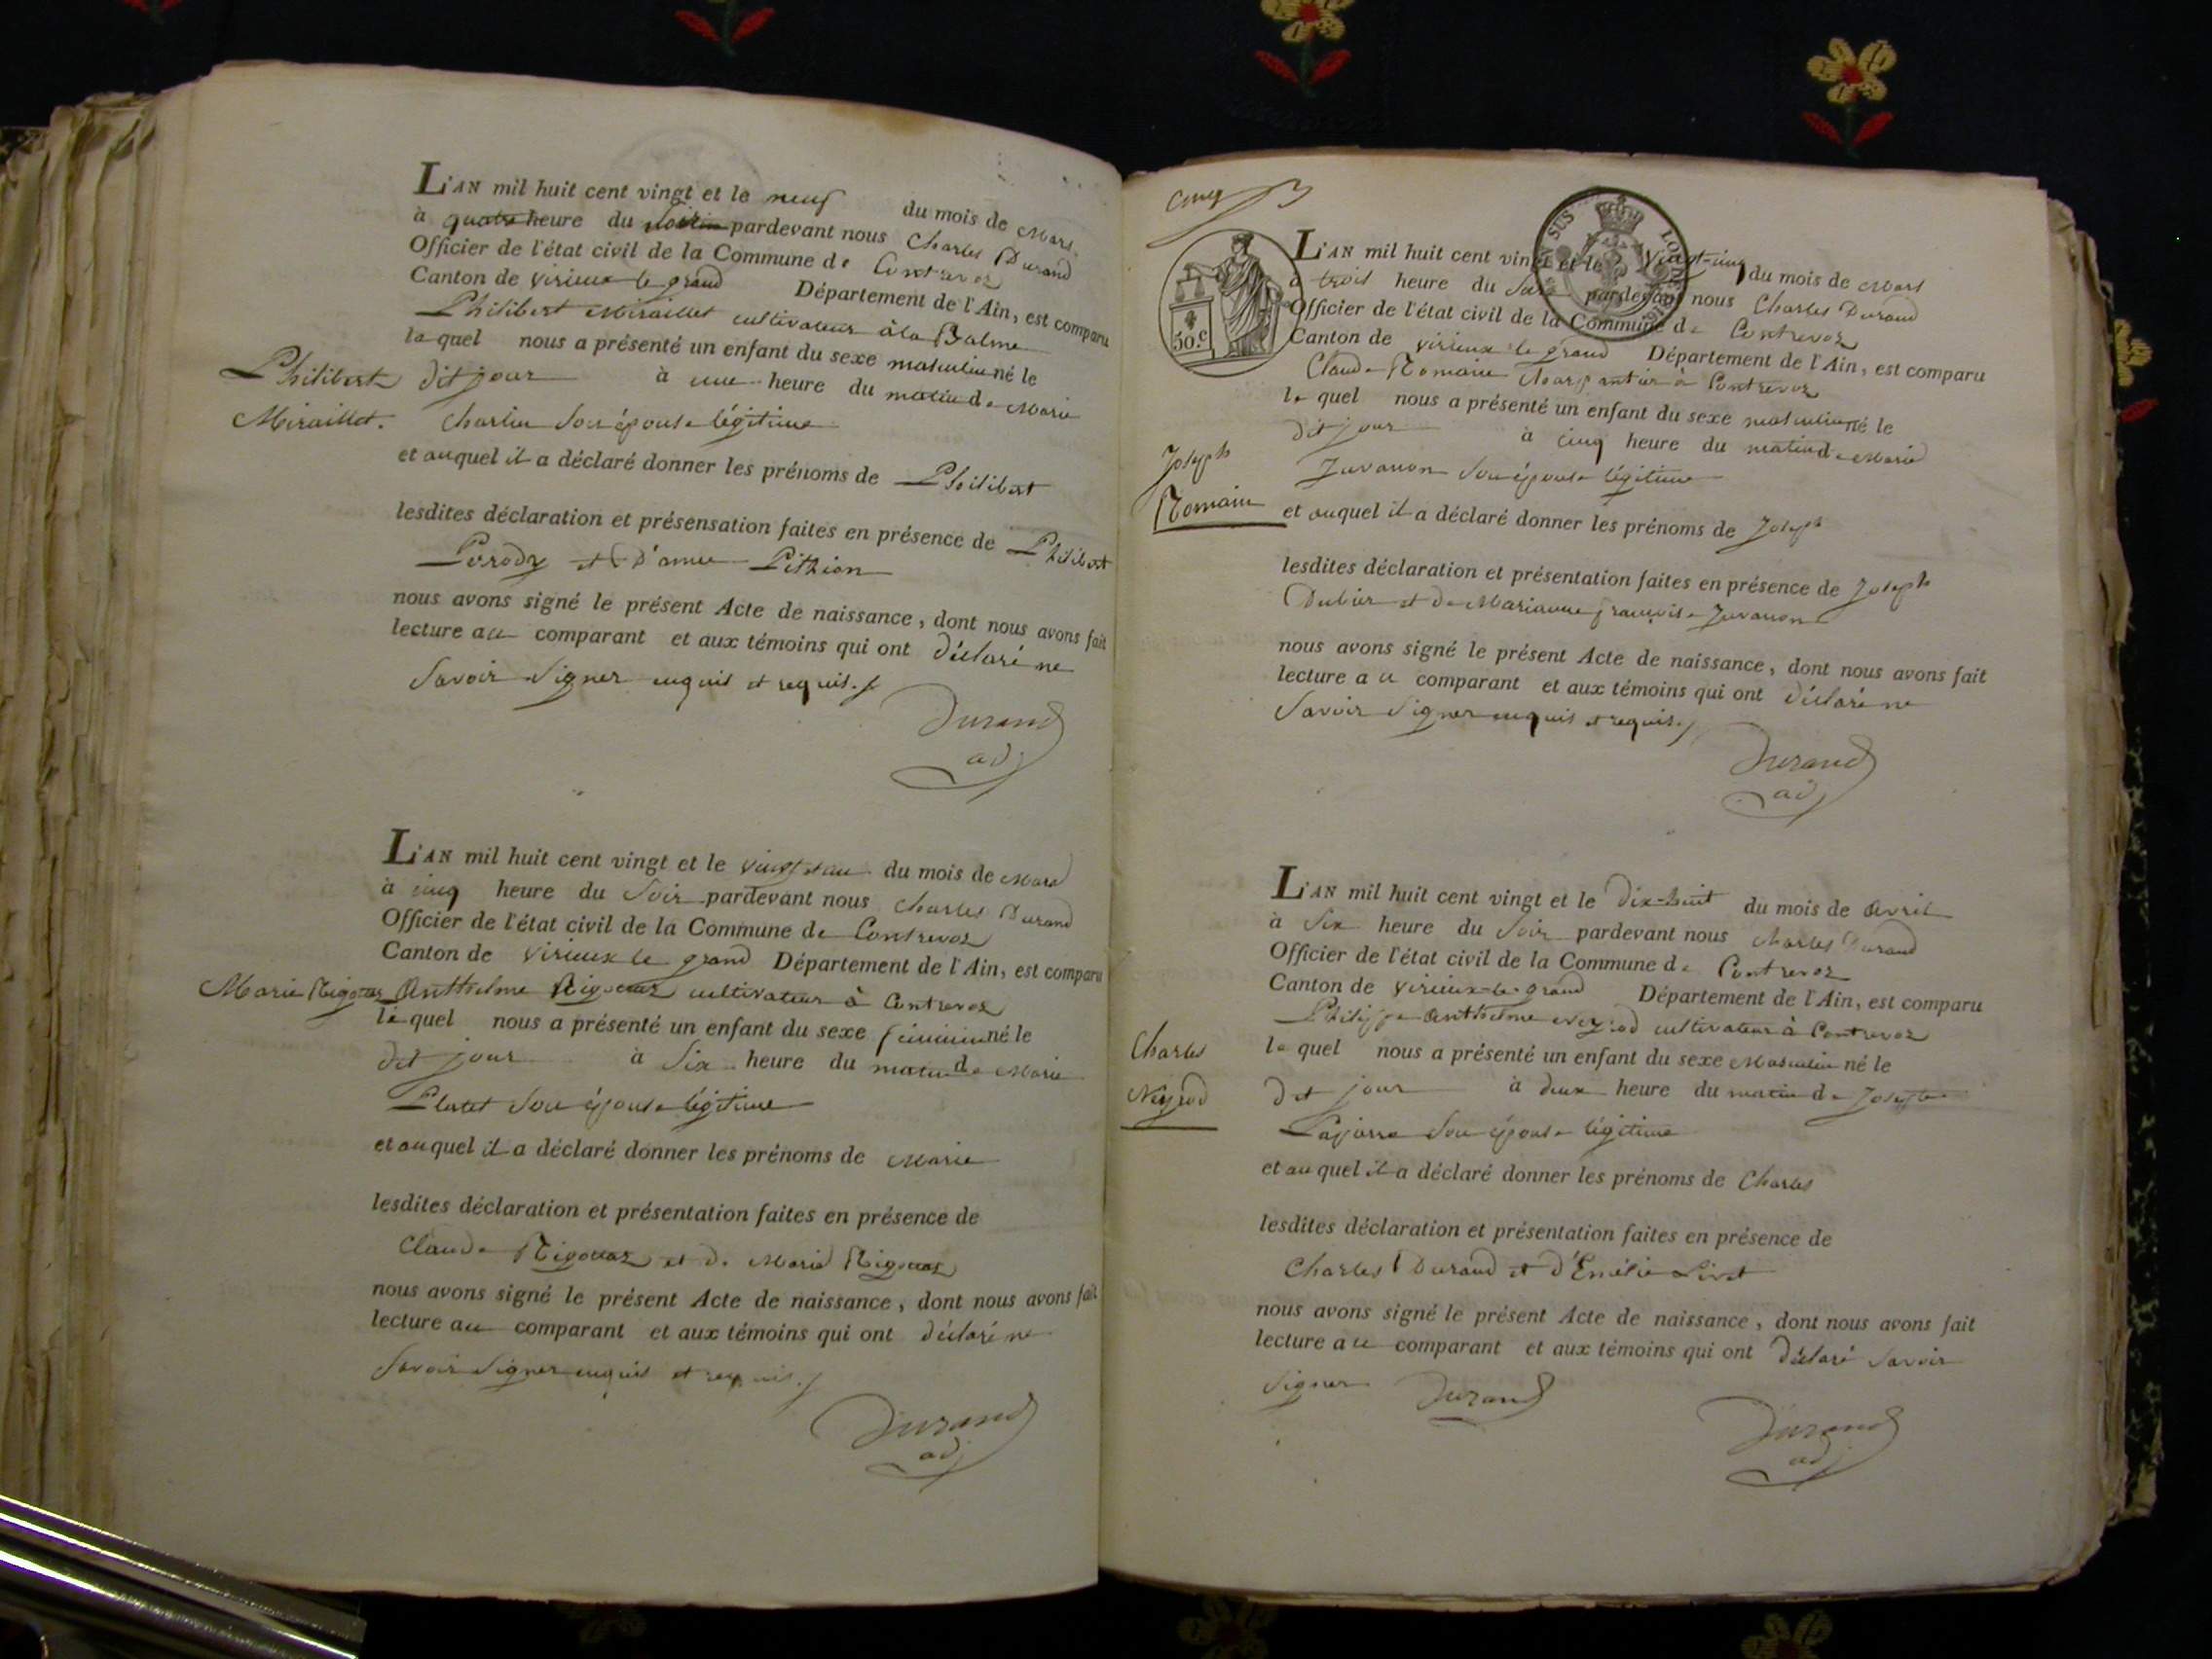 L'AN mil huit cent vingt et le neuf du mois de Mars
à quatre heure du soir pardevant nous Charles Durand
Officier de l'état civil de la Commune de Contrevoz
Canton de Virieux le grand Département de l'Ain, est comparu
Philibert Miraillet cultivateur à la Balme
lequel nous a présenté un enfant du sexe masculin né le
Philibert
dit jour à une heure du matin de Marie
Miraillet.
Charlin son épouse légitime
et auquel il a déclaré donner les prénoms de Philibert
lesdites déclaration et présensation faites en présence de Philibert
Parody et d'amée Pithion
nous avons signé le présent Acte de naissance, dont nous avons fait
lecture au comparant et aux témoins qui ont déclaré ne
savoir signer enquis et requis.
Durand
adj
L'AN mil huit cent vingt et le vingt et un du mois de Mars
à cinq heure du soir pardevant nous Charles Durand
Officier de l'état civil de la Commune de Contrevoz
Canton de Virieux le grand Département de l'Ain, est comparu
Marie Rigottaz
Anthelme Rigottaz cultivateur à Contrevoz
lequel nous a présenté un enfant du sexe féminin né le
dit jour à six heure du matin de Marie
Platet son épouse légitime
et auquel il a déclaré donner les prénoms de Marie
lesdites déclaration et présentation faites en présence de
Claude Rigottaz et de Marie Rigottaz
nous avons signé le présent Acte de naissance, dont nous avons fait
lecture au comparant et aux témoins qui ont déclaré ne
savoir signer enquis et requis.
Durand
adj
cinq
30.c
L'AN mil huit cent vingt et le vingt-cinq du mois de Mars
à trois heure du soir pardevant nous Charles Durand
Officier de l'état civil de la Commune de Contrevoz
Canton de Virieux le grand Département de l'Ain, est comparu
Claude Romain charpantier à Contrevoz
lequel nous a présenté un enfant du sexe masculin né le
dit jour à cinq heure du matin de Marie
Joseph
Juvanon son épouse légitime
Romain
et auquel il a déclaré donner les prénoms de Joseph
lesdites déclaration et présentation faites en présence de Joseph
Dubier et de Marianne françoise Juvanon
nous avons signé le présent Acte de naissance, dont nous avons fait
lecture au comparant et aux témoins qui ont déclaré ne
savoir signer enquis et requis.
Durand
adj
L'AN mil huit cent vingt et le dix-huit du mois de Avril
à six heure du soir pardevant nous Charles Durand
Officier de l'état civil de la Commune de Contrevoz
Canton de Virieux-le-grand Département de l'Ain, est comparu
Philippe Anthelme Neyrod cultivateur à Contrevoz
Charles
lequel nous a présenté un enfant du sexe Masculin né le
Neyrod
dit jour à deux heure du matin de Josephte
son épouse légitime
et auquel il a déclaré donner les prénoms de Charles
lesdites déclaration et présentation faites en présence de
Charles Durand et d'Emélie Livet
nous avons signé le présent Acte de naissance, dont nous avons fait
lecture au comparant et aux témoins qui ont déclaré savoir
signer
Durand
Durand
adj